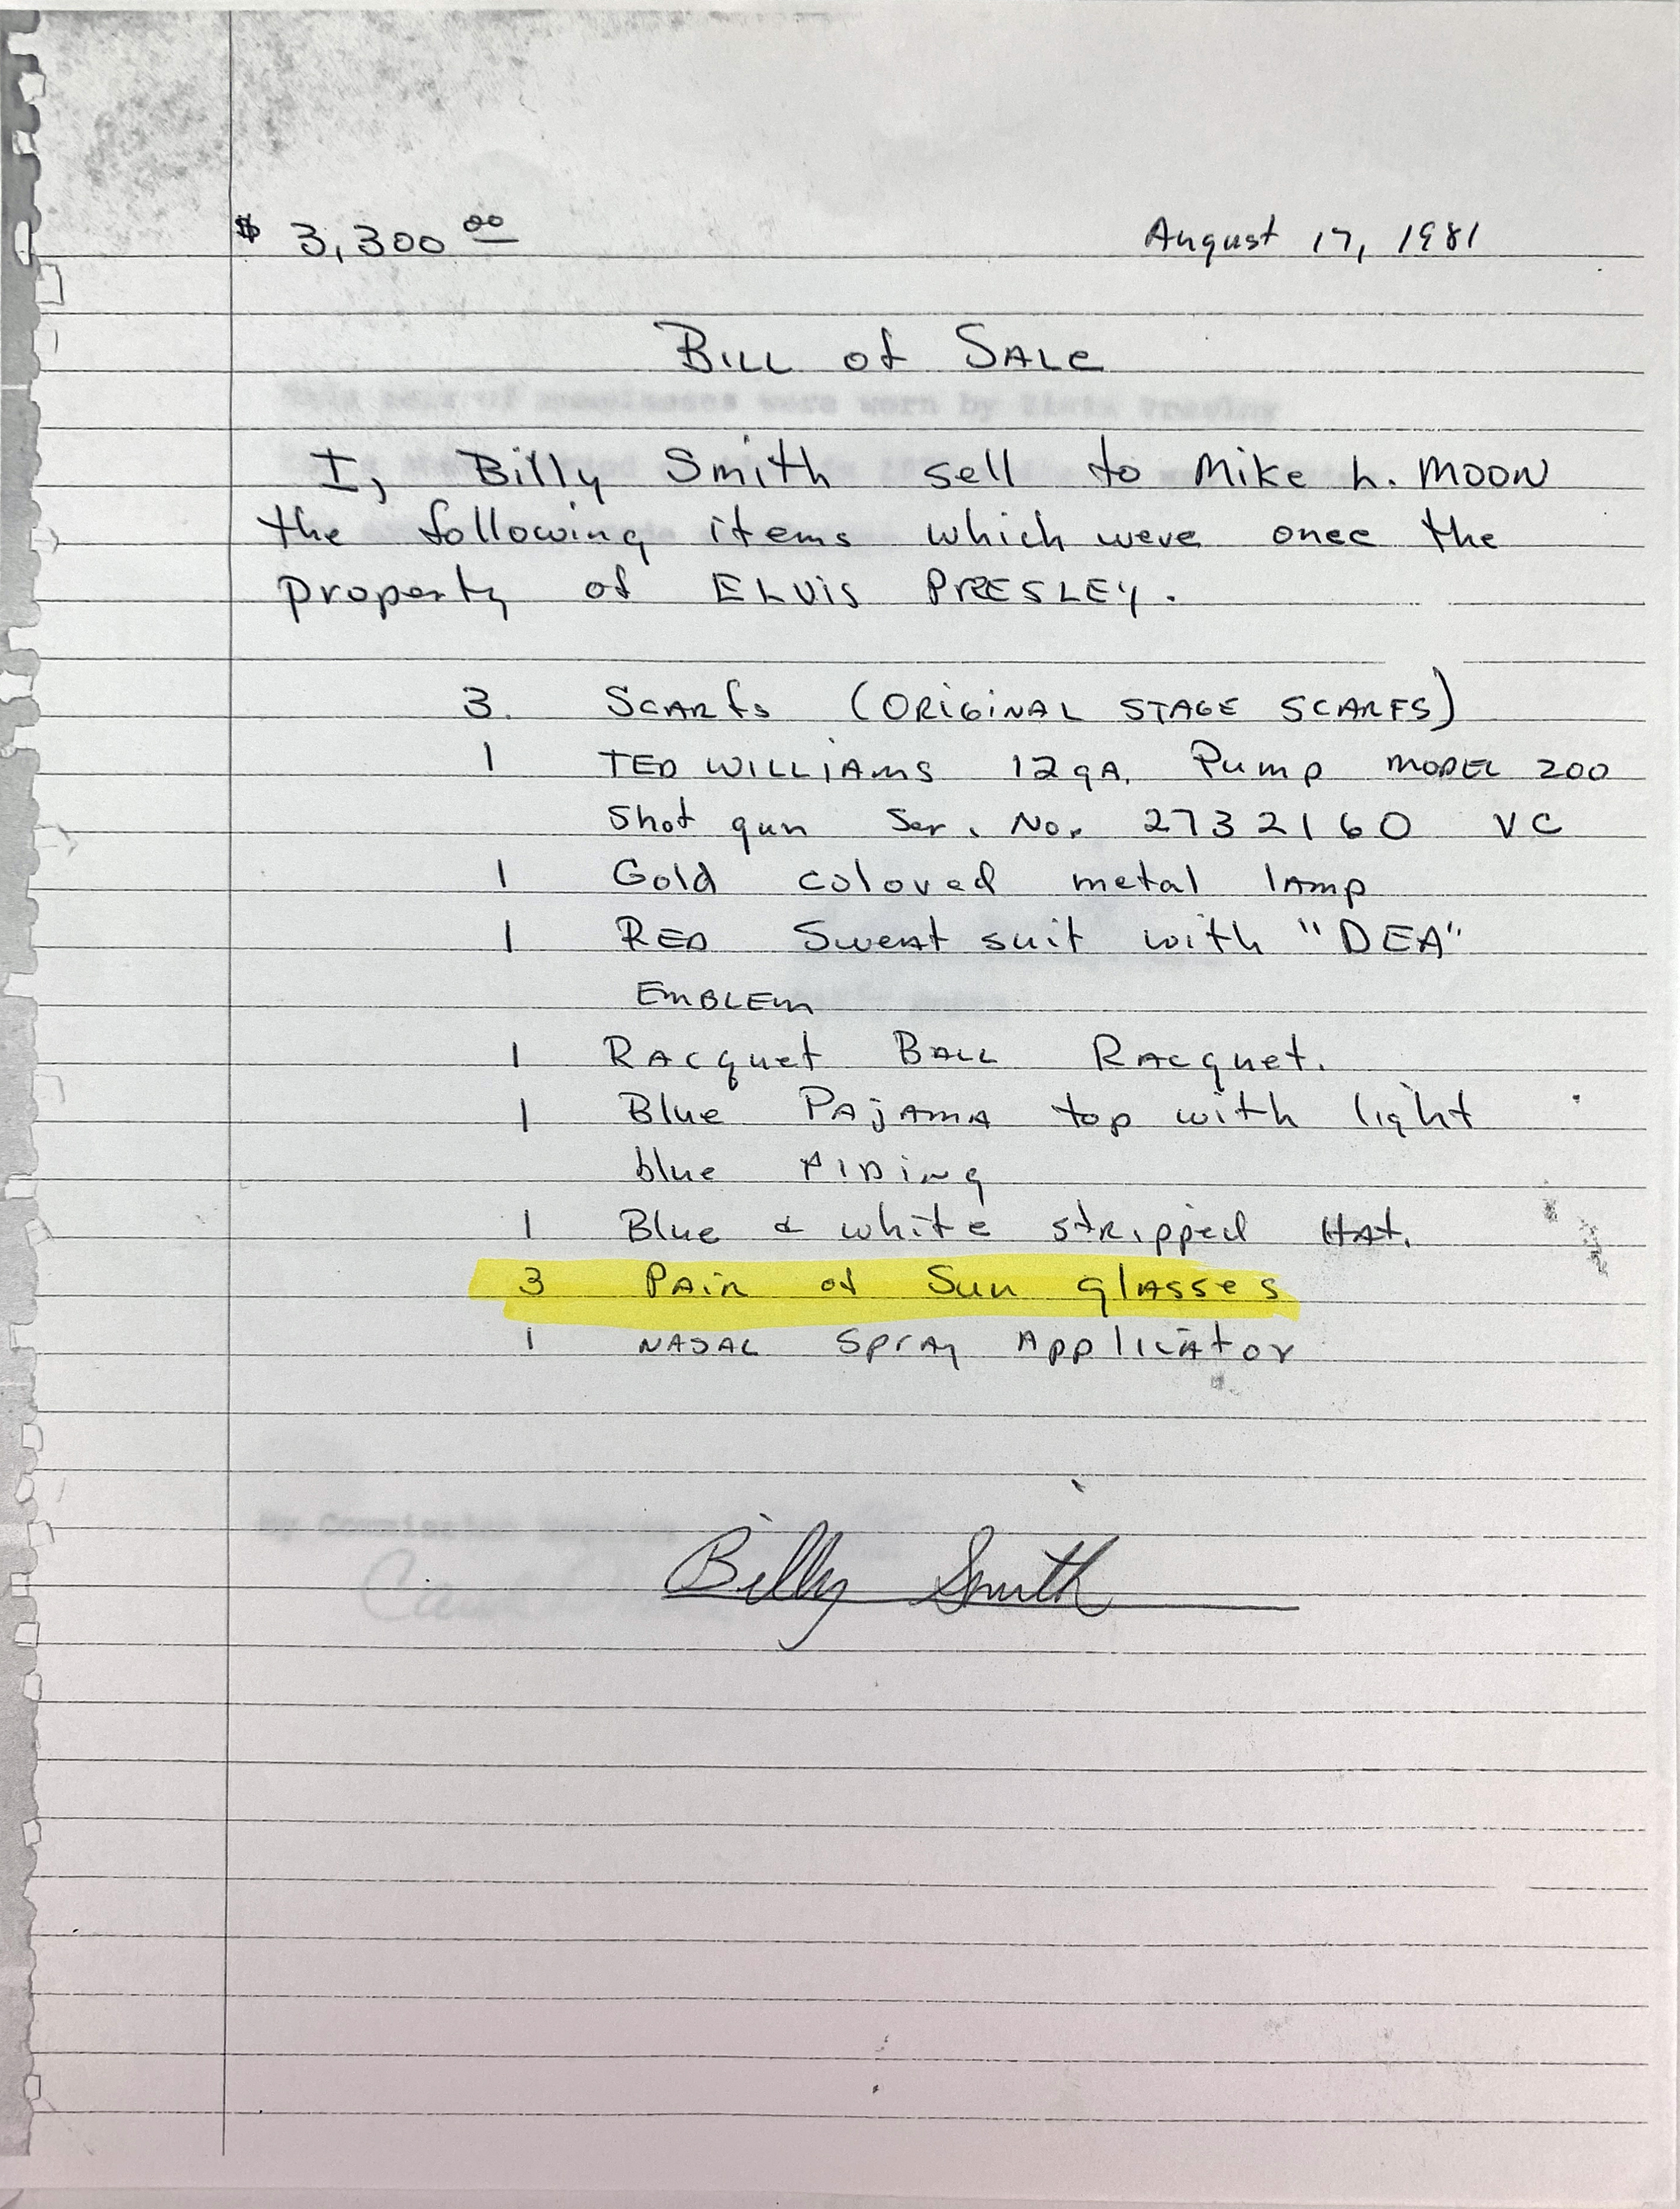 $ 3,300 00 August 17, 1981
Bill of Sale
This pair of sunglasses were worn by Elvis Presley
I, Billy Smith sell to Mike L. Moon
the following items which were once the
property of ELVIS PRESLEY.
3. Scarfs (ORIGINAL STAGE SCARFS)
1 TED WILLIAMS 12 gA. Pump MODEL 200
Shot gun Ser. No. 2732160 VC
1 Gold colored metal lamp
1 RED Sweat suit with "DEA"
EMBLEM
1 Racquet Ball Racquet.
1 Blue Pajama top with light
blue Piping
1 Blue & white stripped Hat.
3 Pair of Sun glasses
1 NASAL Spray Applicator
My Commission
Billy Smith